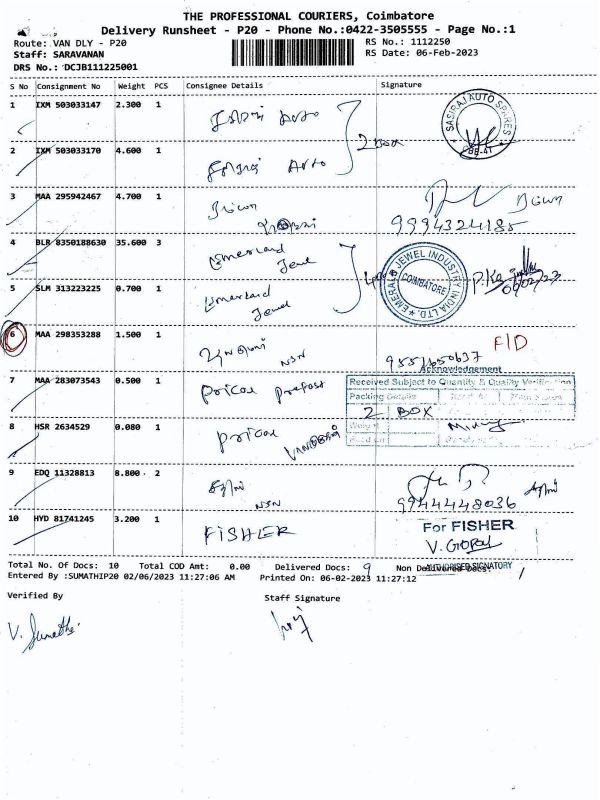 THE PROFESSIONAL COURIERS, Coimbatore
Delivery Runsheet - P20 - Phone No.:0422-3505555 - Page No.:1
Route: VAN DLY - P20
Staff: SARAVANAN
DRS No.: DCJB111225001
RS No.: 1112250
RS Date: 06-Feb-2023
S No Consignment No Weight PCS Consignee Details Signature
1 IXM 503033147 2.300 1 Auto
SASIRAJ AUTO SPARES
CBE-41
2 Box
2 IXM 503033170 4.600 1 Auto
3 MAA 295942467 4.700 1
9994324185
4 BLR 8350188630 35.600 3 Emerland Jewel
EMERALD JEWEL INDUSTRY INDIA LTD.
COIMBATORE
06/02/23
5 SLM 313223225 0.700 1 Emerland Jewel
6 MAA 298353288 1.500 1 NSN
F/D
9551650637
Acknowledgement
7 MAA 283073543 0.500 1 Pricol Prefast
Received Subject to Quantity & Quality Verification
Packing Details
2 BOX
8 HSR 2634529 0.080 1 Pricol
Weight
9 EDQ 11328813 8.800 2 NSN
9944448036
10 HYD 81741245 3.200 1 FISHER
For FISHER
V. GOPAL
AUTHORISED SIGNATORY
Total No. Of Docs: 10 Total COD Amt: 0.00 Delivered Docs: 9 Non Delivered Docs: 1
Entered By :SUMATHIP20 02/06/2023 11:27:06 AM Printed On: 06-02-2023 11:27:12
Verified By Staff Signature
V. Sumathi